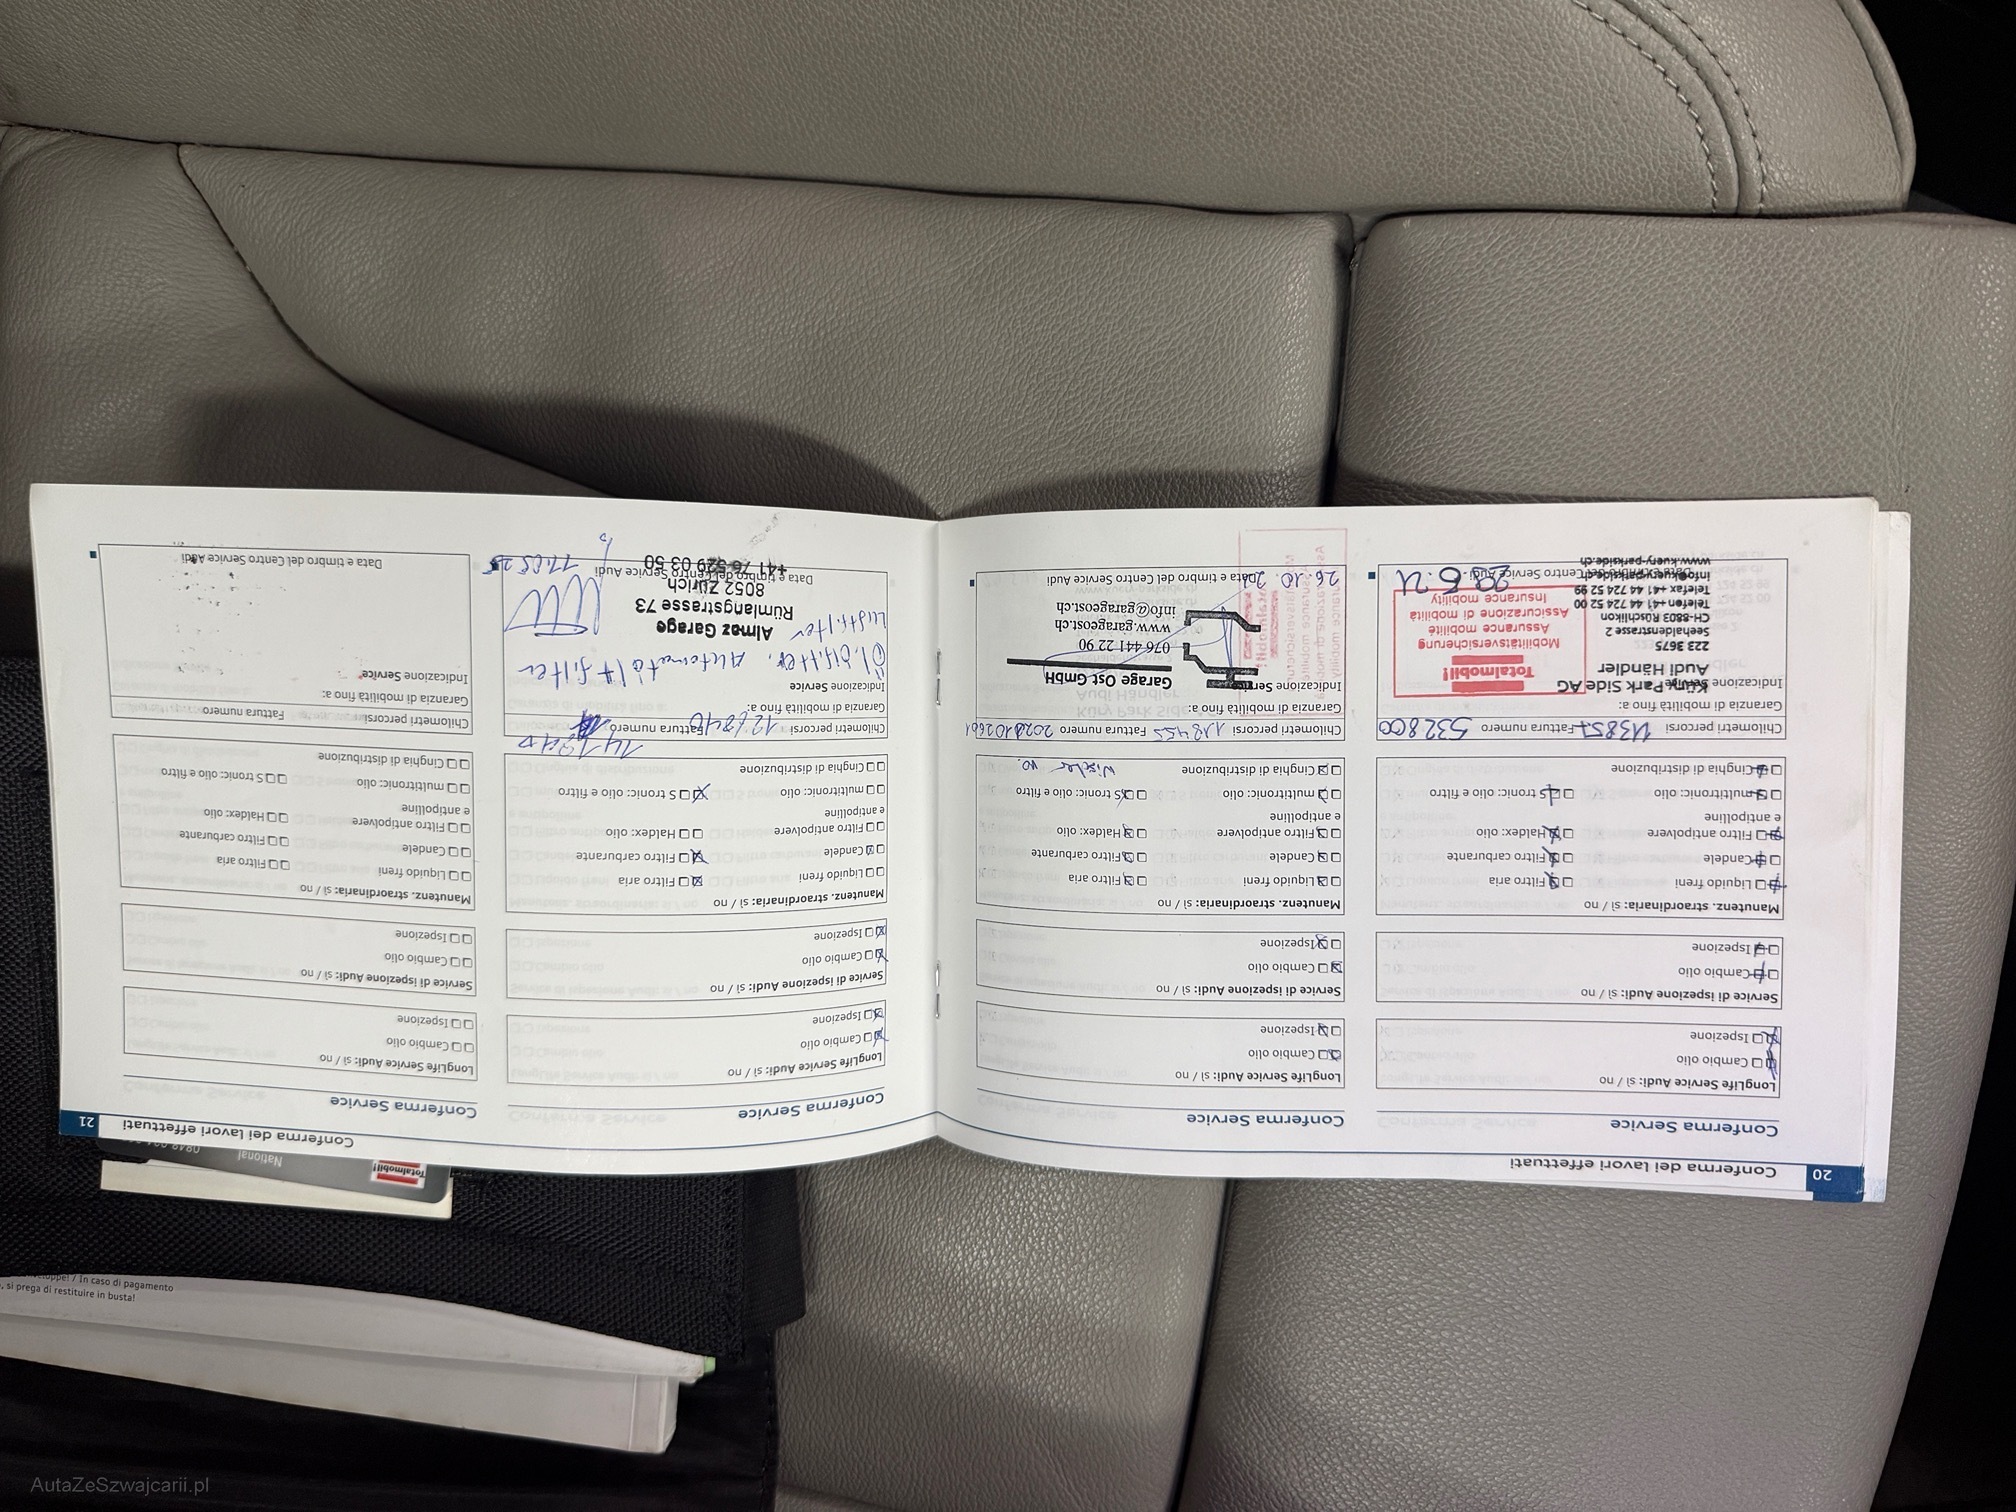 20
Conferma dei lavori effettuati
Conferma Service
LongLife Service Audi: sì / no
Cambio olio
Ispezione
Service di ispezione Audi: sì / no
Cambio olio
Ispezione
Manutenz. straordinaria: sì / no
Liquido freni
Filtro aria
Candele
Filtro carburante
Filtro antipolvere
e antipolline
Haldex: olio
multitronic: olio
S tronic: olio e filtro
Cinghia di distribuzione
Chilometri percorsi 113857 Fattura numero 532800
Garanzia di mobilità fino a:
Indicazione Service
Küry Park Side AG
Audi Händler
223 3675
Seehaldenstrasse 2
CH-8803 Rüschlikon
Telefon +41 44 724 52 00
Telefax +41 44 724 52 99
info@kuery-parkside.ch
www.kuery-parkside.ch
Totalmobil!
Mobilitätsversicherung
Assurance mobilité
Assicurazione di mobilità
Insurance mobility
Data e timbro del Centro Service Audi
Conferma Service
LongLife Service Audi: sì / no
Cambio olio
Ispezione
Service di ispezione Audi: sì / no
Cambio olio
Ispezione
Manutenz. straordinaria: sì / no
Liquido freni
Filtro aria
Candele
Filtro carburante
Filtro antipolvere
e antipolline
Haldex: olio
multitronic: olio
S tronic: olio e filtro
Cinghia di distribuzione
Chilometri percorsi 118455 Fattura numero
Garanzia di mobilità fino a:
Indicazione Service
Garage Ost GmbH
076 441 22 90
www.garageost.ch
info@garageost.ch
Data e timbro del Centro Service Audi
26.10.
21
Conferma dei lavori effettuati
Conferma Service
LongLife Service Audi: sì / no
Cambio olio
Ispezione
Service di ispezione Audi: sì / no
Cambio olio
Ispezione
Manutenz. straordinaria: sì / no
Liquido freni
Filtro aria
Candele
Filtro carburante
Filtro antipolvere
e antipolline
Haldex: olio
multitronic: olio
S tronic: olio e filtro
Cinghia di distribuzione
Chilometri percorsi Fattura numero
Garanzia di mobilità fino a:
Indicazione Service
Luftfilter
Almaz Garage
Rümlangstrasse 73
8052 Zürich
+41 76 529 03 50
Data e timbro del Centro Service Audi
Conferma Service
LongLife Service Audi: sì / no
Cambio olio
Ispezione
Service di ispezione Audi: sì / no
Cambio olio
Ispezione
Manutenz. straordinaria: sì / no
Liquido freni
Filtro aria
Candele
Filtro carburante
Filtro antipolvere
e antipolline
Haldex: olio
multitronic: olio
S tronic: olio e filtro
Cinghia di distribuzione
Chilometri percorsi Fattura numero
Garanzia di mobilità fino a:
Indicazione Service
Data e timbro del Centro Service Audi
Totalmobil!
National
/ In caso di pagamento
, si prega di restituire in busta!
AutaZeSzwajcarii.pl